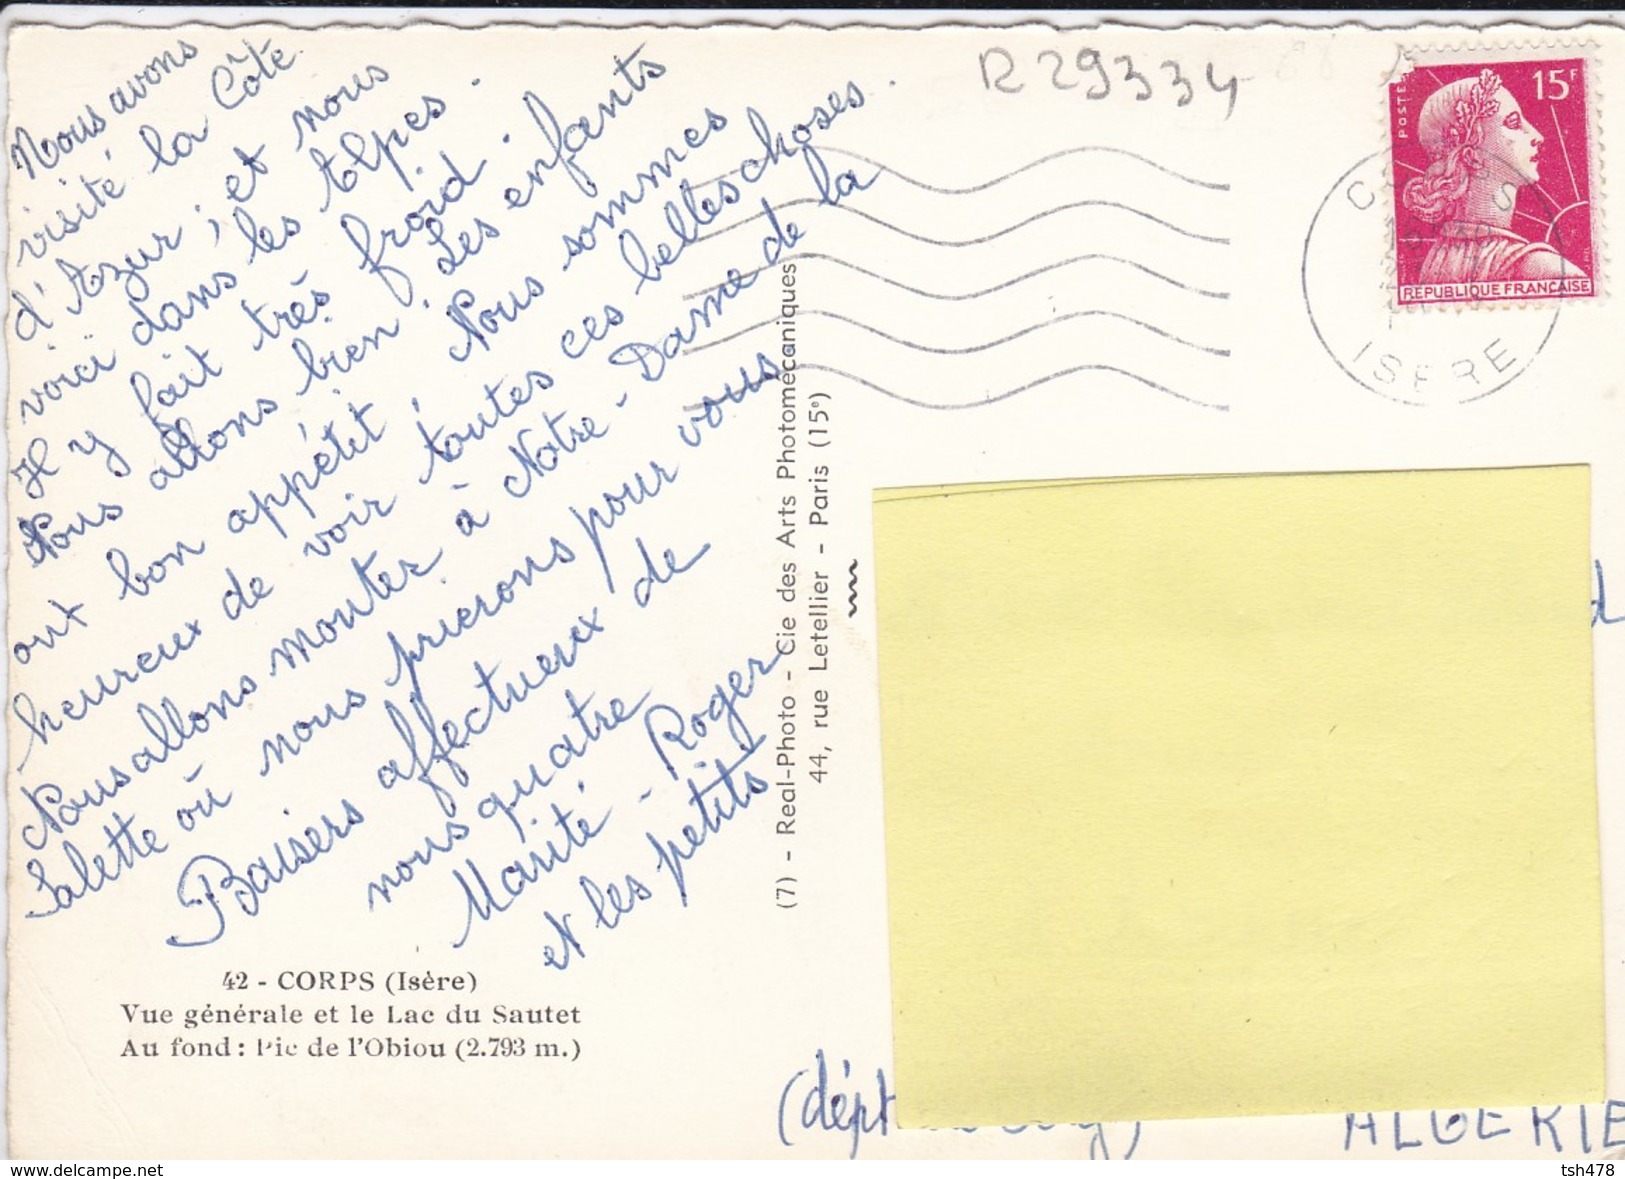 Nous avons
visité la Côte
d'Azur ; et nous
voici dans les Alpes.
Il y fait très froid.
Nous allons bien. Les enfants
ont bon appétit, Nous sommes
heureux de voir toutes ces belles choses.
Nous allons monter à Notre-Dame de la
Salette où nous prierons pour vous
Baisers affectueux de
nous quatre
Marité - Roger
et les petits
42 - CORPS (Isère)
Vue générale et le Lac du Sautet
Au fond : Pic de l'Obiou (2.793 m.)
(7) - Real-Photo - Cie des Arts Photomécaniques
44, rue Letellier - Paris (15e)
R 29334
POSTES
15F
REPUBLIQUE FRANÇAISE
ISERE
(dépt
ALGERIE
www.delcampe.net
tsh478